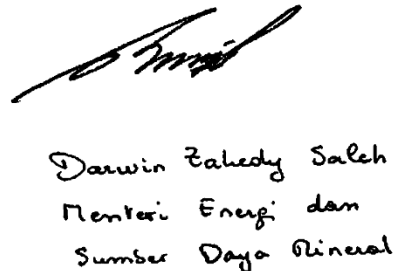 Darwin Zahedy Saleh
Menteri Energi dan
Sumber Daya Mineral